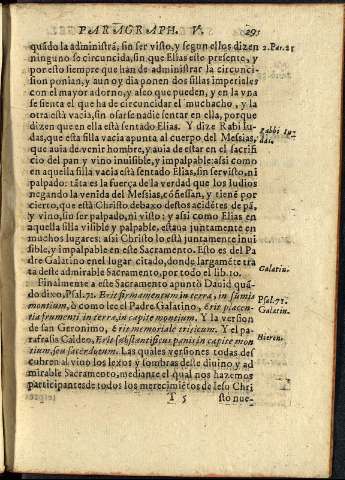 PARAGRAPH. V. 295
quãdo la administrã, sin ser visto, y segun ellos dizen
ninguno se circuncida, sin que Elias este presente, y
por esto siempre que han de administrar la circunci
sion ponian, y aun oy dia ponen dos sillas imperiales
con el mayor adorno, y aseo que pueden, y en la vna
se sienta el que ha de circuncidar el muchacho, y la
otra està vacia, sin osarse nadie sentar en ella, porque
dizen que en ella està sentado Elias. Y dize Rabi Iu-
das, que esta silla vacia apunta al cuerpo del Messias,
que auia de venir hombre, y auia de estar en el sacrifi
cio del pan y vino inuisible, y impalpable: assi como
en aquella silla vacia està sentado Elias, sin ser visto, ni
palpado: tãta es la fuerça de la verdad que los Iudios
negando la venida del Messias, cõfiessan, y tiene por
cierro, que està Christo debaxo destos acidẽtes de pã,
y vino, sin ser palpado, ni visto: y assi como Elias en
aquella silla visible y palpable, estaua juntamente en
muchos lugares: assi Christo lo està juntamente inui
sible, y impalpable en este Sacramento. Esto es del Pa
dre Galatino en el lugar citado, donde largamẽte tra
ta deste admirable Sacramento, por todo el lib. 10.
Finalmente a este Sacramento apuntò Dauid quã-
do dixo, Psal. 71. Erit firmamentum in terra, in summis
montium, ò como lee el Padre Galatino, Erit placen-
tia frumenti in terra, in capite montium. Y la version
de san Geronimo, Erit memoriale triticum. Y el pa-
rafrasis Caldeo, Erit substantificus panis in capite mon
tium, seu sacerdotum. Las quales versiones todas des
cubren al viuo los lexos y sombras deste diuino, y ad
mirable Sacramento, mediante el qual nos hazemos
participantes de todos los merecimiẽtos de Iesu Chri
T 5 sto nue-
2. Par. 21
Rabbi Iu-
das.
Galatin.
Psal. 71.
Galatin.
Hieron.